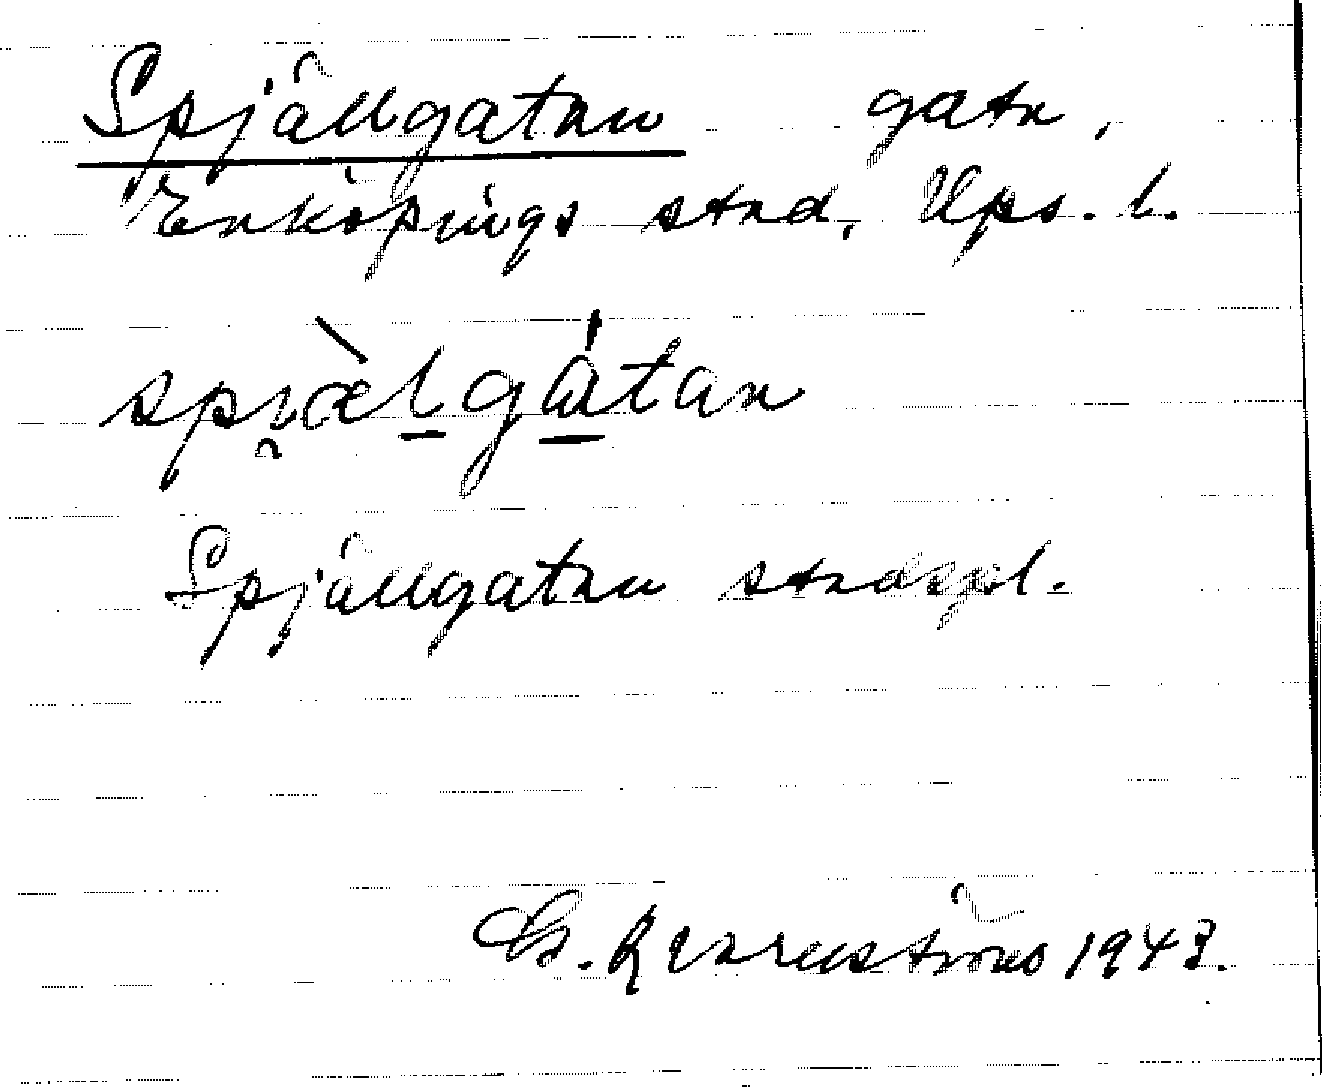 Spjällgatan gata,
Enköpings stad, Ups. l.
Spjällgatan stadspl.
G. Kvarnström 1943.